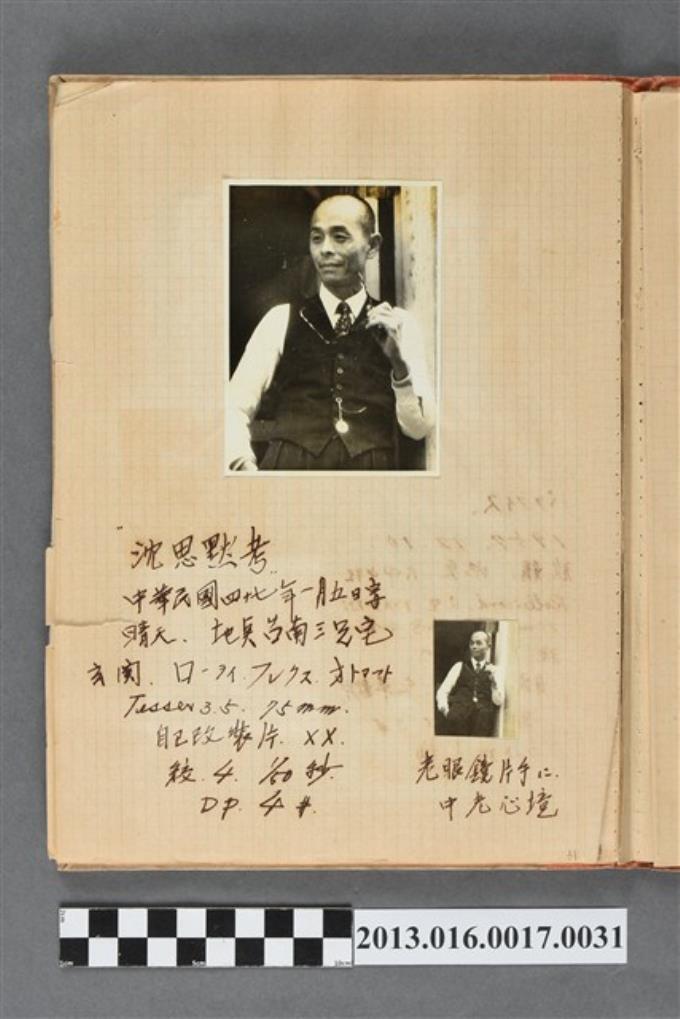 "沈思默考"
中華民國四十七年一月五日寫
晴天. 地點 呂南三兄宅
玄関. ローライ.フレクス.オトマト
Tesser 3.5. 75mm.
自己改裝片. XX.
絞. 4. 1/50 秒.
DP. 4 #.
老眼鏡片手に.
中老心境
2013.016.0017.0031